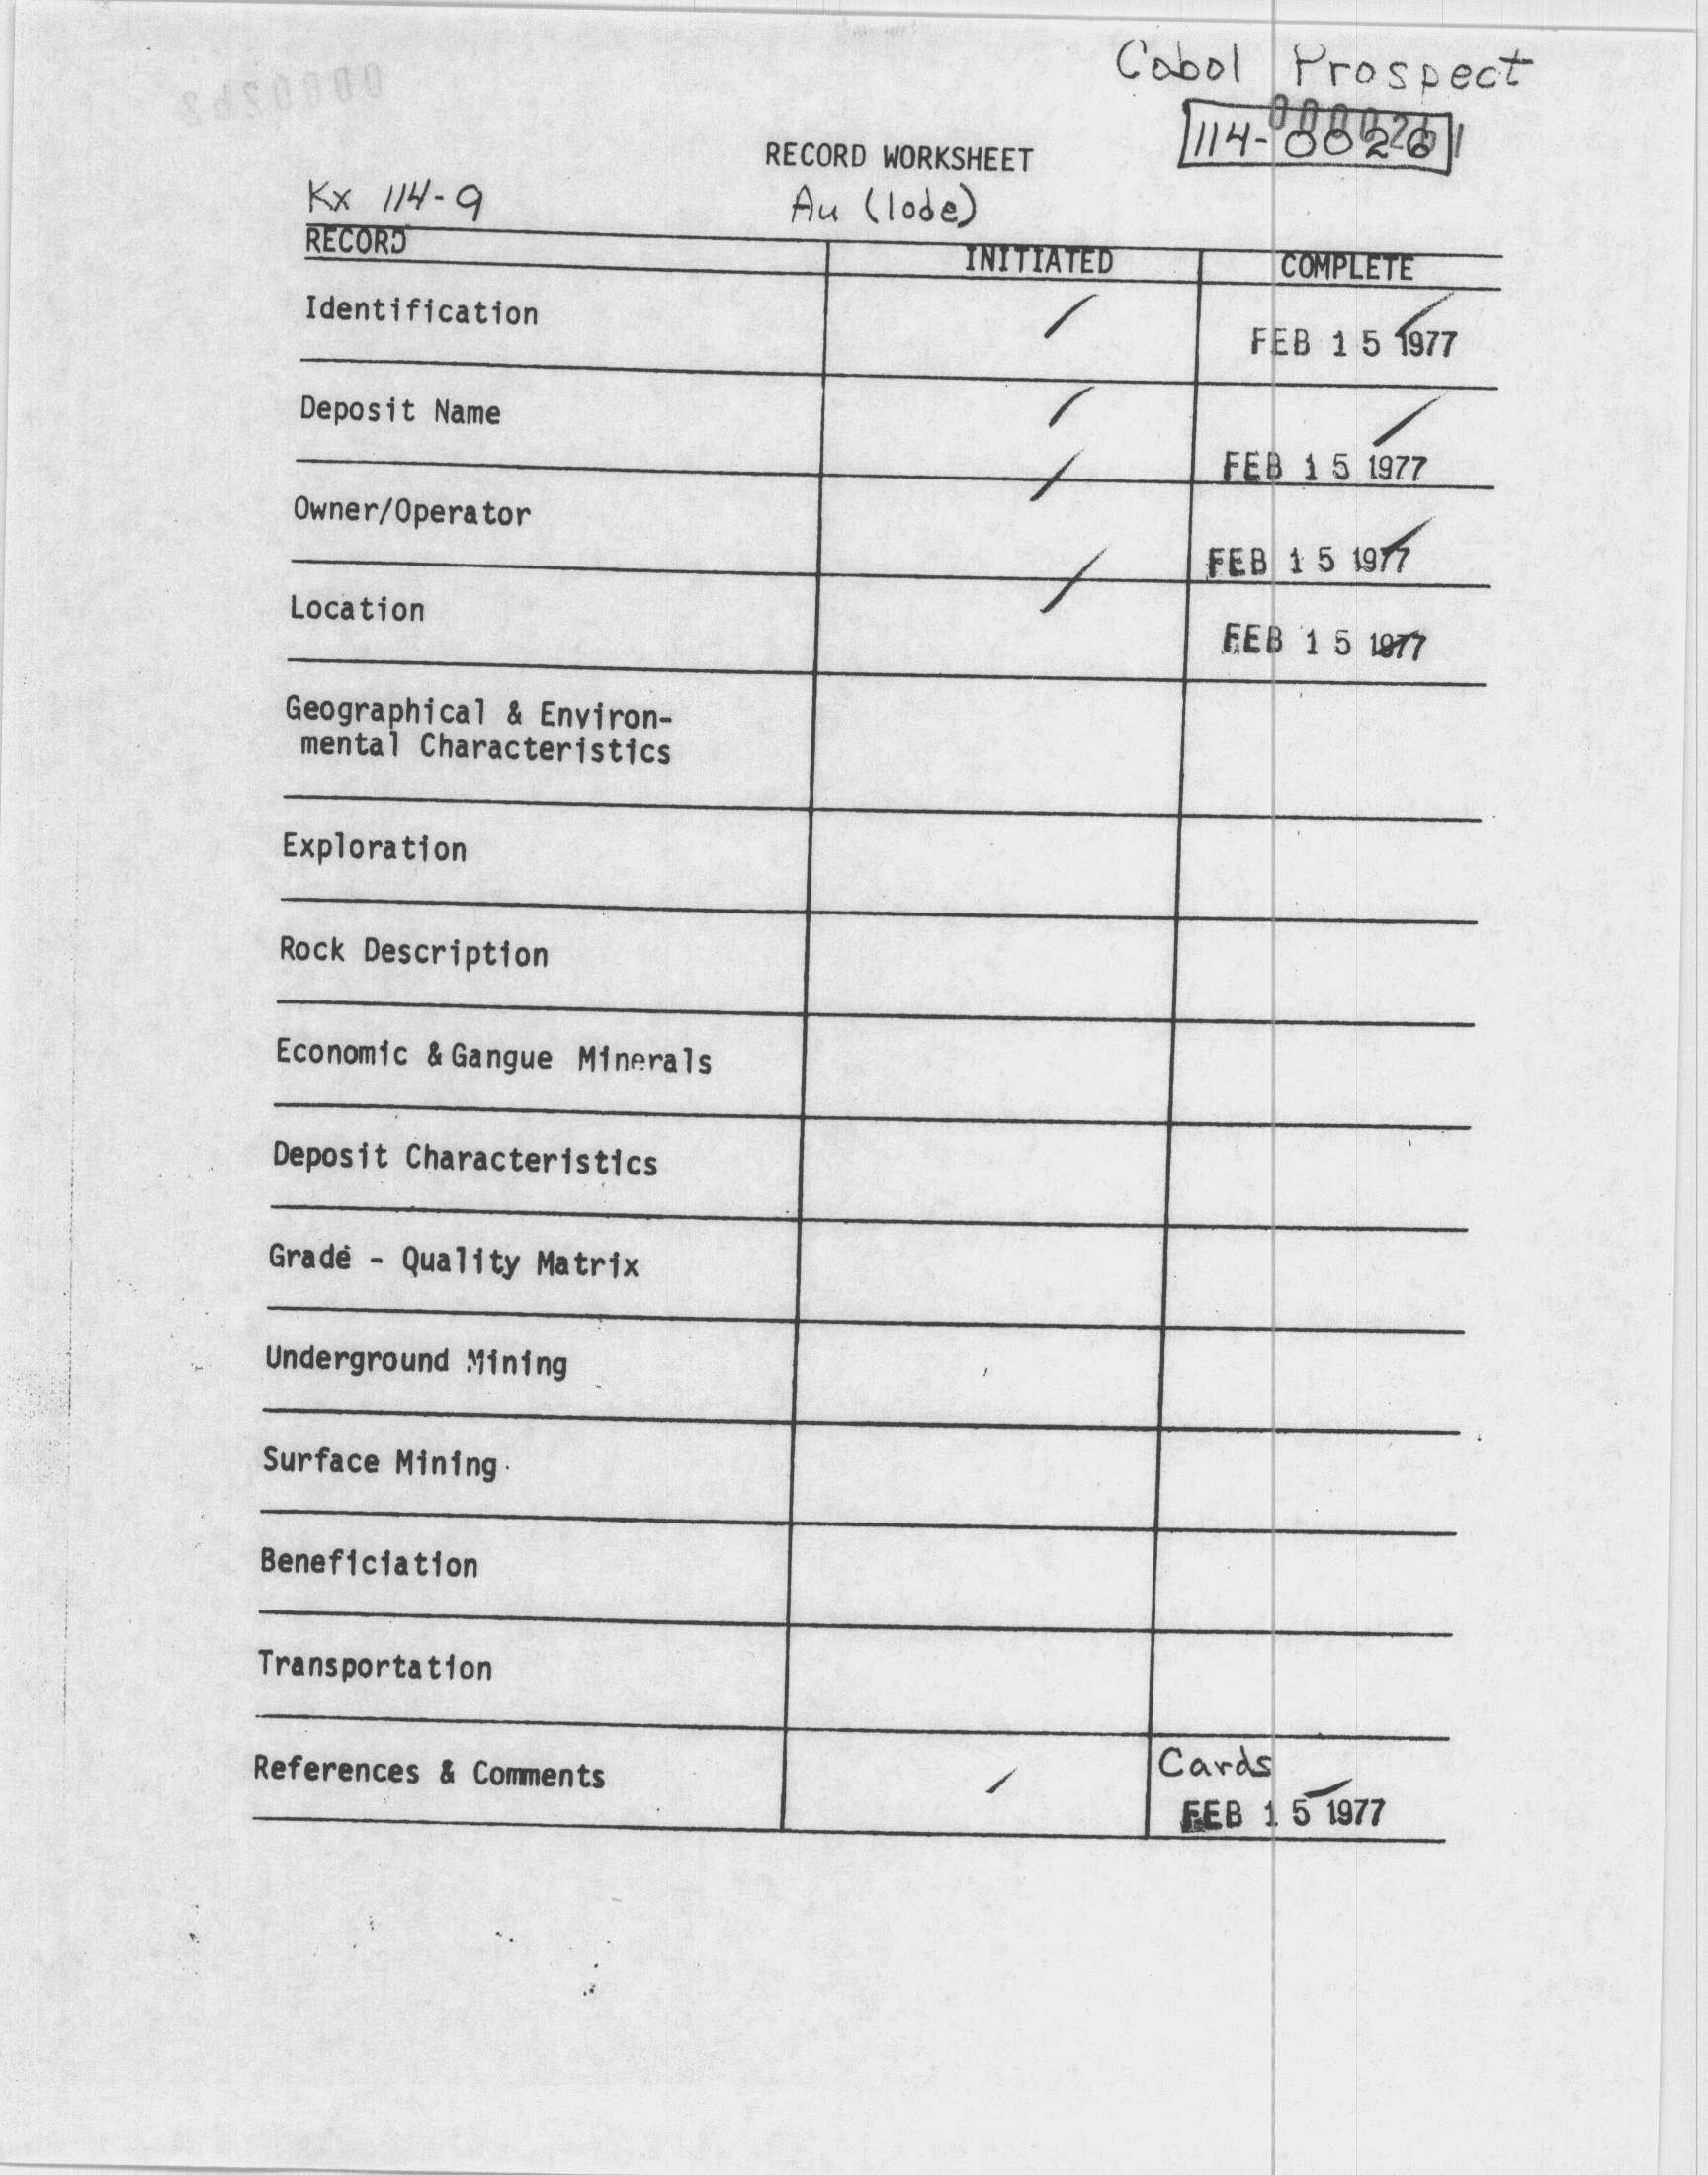 Cobol Prospect
114-0026
RECORD WORKSHEET
Kx 114-9
Au (lode)
RECORD INITIATED COMPLETE
Identification / FEB 15 1977
Deposit Name / FEB 15 1977
Owner/Operator / FEB 15 1977
Location / FEB 15 1977
Geographical & Environ-
mental Characteristics
Exploration
Rock Description
Economic & Gangue Minerals
Deposit Characteristics
Grade - Quality Matrix
Underground Mining
Surface Mining
Beneficiation
Transportation
References & Comments / Cards
FEB 15 1977